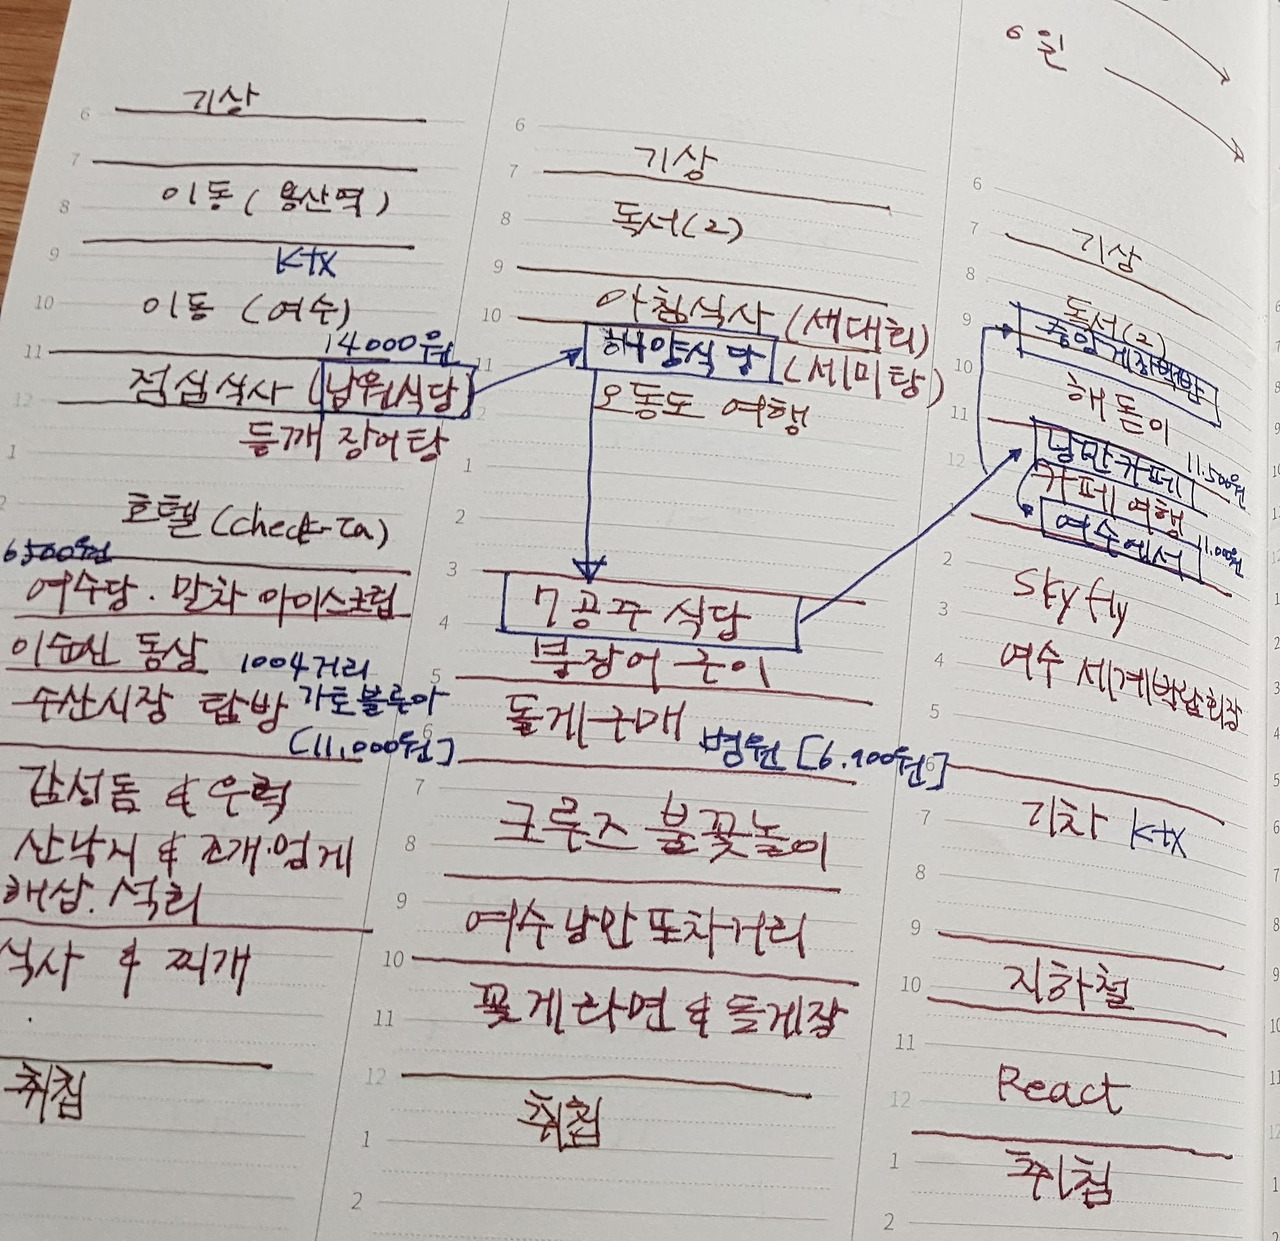 기상
이동 (용산역)
ktx
이동 (여수)
14000원
점심식사 (남원식당)
들깨 장어탕
호텔 (check-In)
6500원
여수당. 말차 아이스크림
이순신 동상 1004거리
수산시장 탐방
[11.000원]
감성돔 & 우럭
산낙지 & 조개.멍게
해삼. 석회
식사 & 찌개
취침
6
7
8
9
10
11
12
1
2
기상
독서(2)
아침식사 (새대회)
해양식당 (세미탕)
오동도 여행
7공주 식당
붕장어 구이
돌게구매
병원 [6.900원]
크루즈 불꽃놀이
여수낭만 포차거리
꽃게라면 & 돌게장
취침
6
7
8
9
10
11
2
1
2
3
4
5
6
7
8
9
10
11
12
1
2
6일
기상
독서(2)
중앙게장백반
해돋이
낭만카페 11.500원
카페여행
여수에서 11.000원
Sky fly
여수 세계박람회장
기차 ktx
지하철
React
취침
6
7
8
9
10
11
12
2
3
4
5
6
7
8
9
10
11
12
1
2